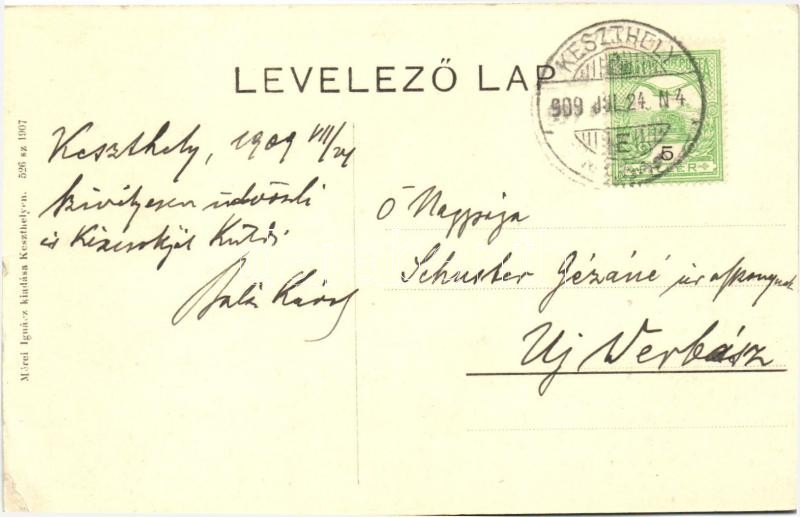 LEVELEZŐ LAP
KESZTHELY
909 JUL. 24. N 4
E
5
Keszthely, 1909 VII/24
Szivélyesen üdvözli
és Kézcsókját Küldi
Károly
Ő Nagysága
Schuster Gézáné úr asszonynak
Uj Verbász
Mérei Ignácz kiadása Keszthelyen. 526 sz 1907